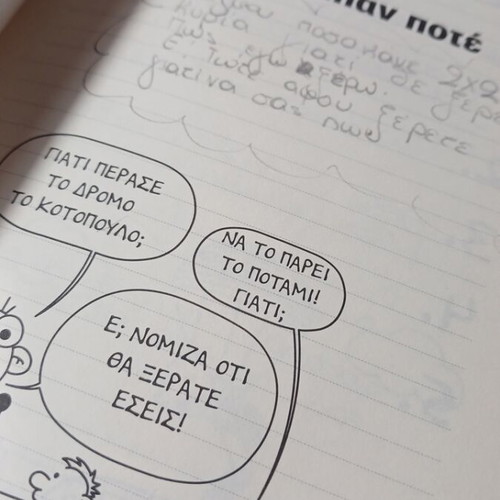 παν ποτέ
ποσο κανε 2χ2
Κυρία γιατί δε ξέρε
Πως εγω ξερω.
Ε τωρα αφου ξερετε
γιατι να σας πω
ΓΙΑΤΙ ΠΕΡΑΣΕ
ΤΟ ΔΡΟΜΟ
ΤΟ ΚΟΤΟΠΟΥΛΟ;
ΝΑ ΤΟ ΠΑΡΕΙ
ΤΟ ΠΟΤΑΜΙ!
ΓΙΑΤΙ;
Ε; ΝΟΜΙΖΑ ΟΤΙ
ΘΑ ΞΕΡΑΤΕ
ΕΣΕΙΣ!